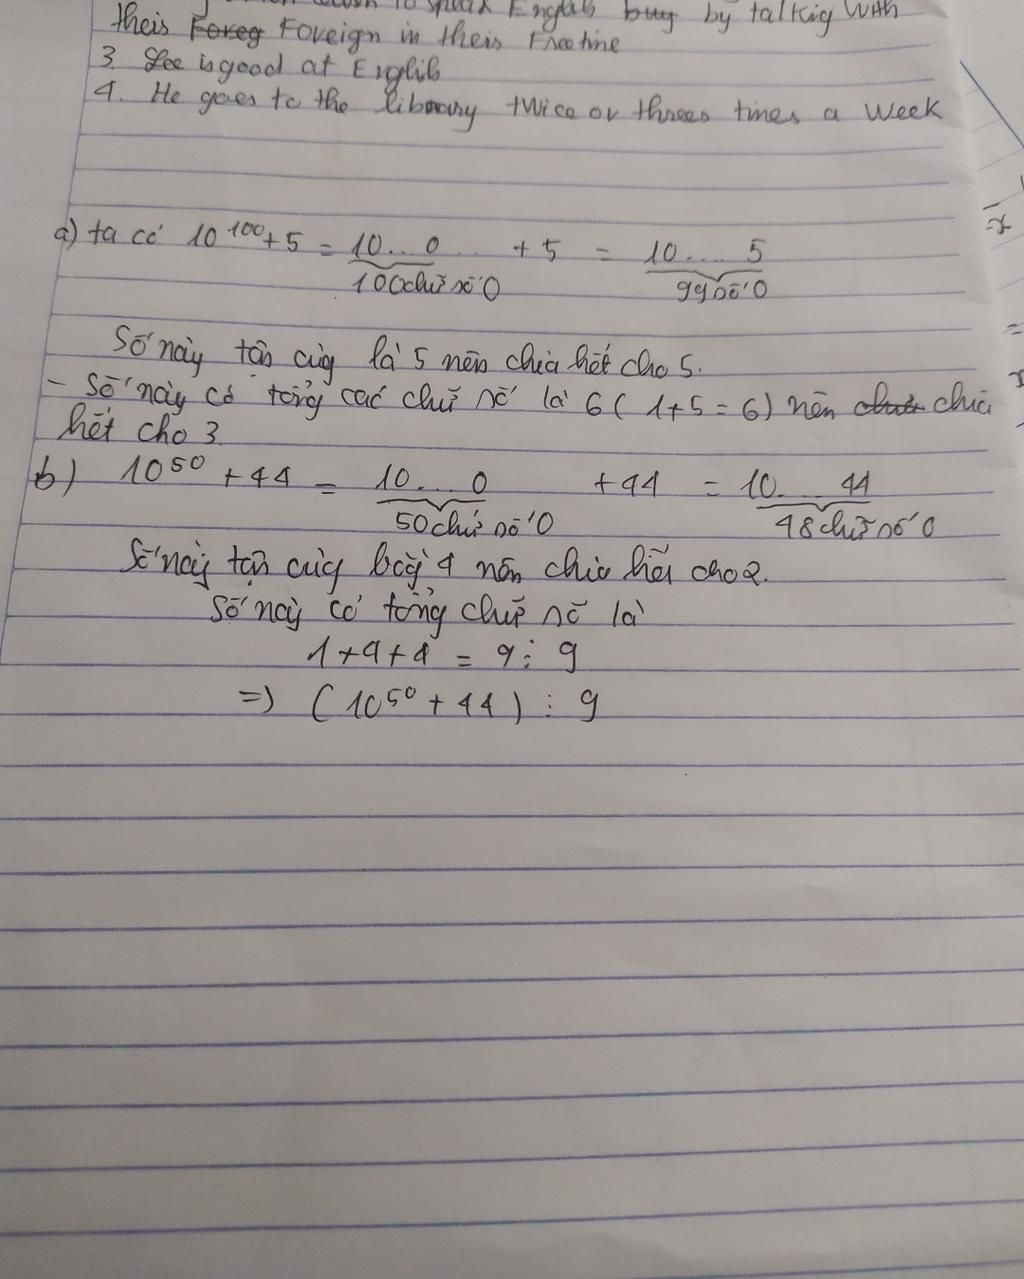 to speak English buy by talkig with
theis Foreg Foreign in theis Freetine
3. Lee is good at Englib
4. He goes to the library twice or threes times a week
a) ta có 10^100 + 5 = 10... 0... + 5 = 10.... 5
100 chữ số 0 99 số 0
Số này tận cùg là 5 nên chia hết cho 5.
- Số này có tổng các chữ số là 6 (1+5=6) nên chia
hết cho 3
b) 10^50 + 44 = 10... 0 + 44 = 10... 44
50 chữ số 0 48 chữ số 0
Số này tận cùg bằg 4 nên chia hết cho 2.
Số này có tổng chữ số là
1+4+4 = 9 ⋮ 9
=> (10^50 + 44) ⋮ 9
x
=